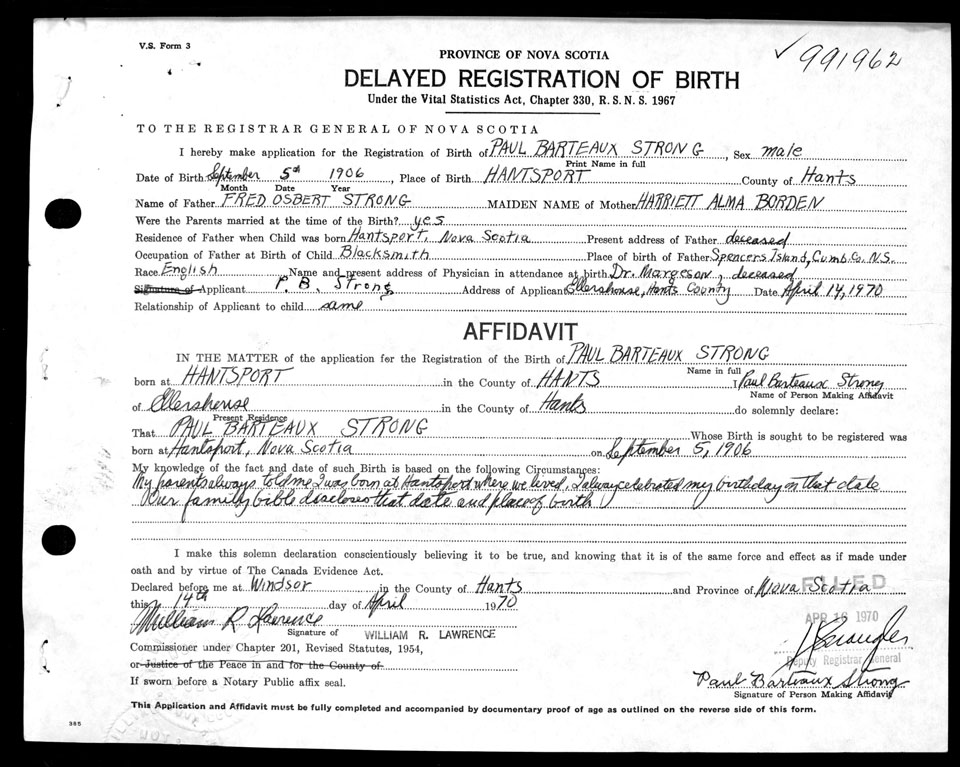 V.S. Form 3
991962
PROVINCE OF NOVA SCOTIA
DELAYED REGISTRATION OF BIRTH
Under the Vital Statistics Act, Chapter 330, R.S.N.S. 1967
TO THE REGISTRAR GENERAL OF NOVA SCOTIA
I hereby make application for the Registration of Birth of PAUL BARTEAUX STRONG, Sex male
Print Name in full
Date of Birth September 5th 1906, Place of Birth HANTSPORT County of Hants
Month Date Year
Name of Father FRED OSBERT STRONG MAIDEN NAME of Mother HARRIETT ALMA BORDEN
Were the Parents married at the time of the Birth? yes
Residence of Father when Child was born Hantsport, Nova Scotia Present address of Father deceased
Occupation of Father at Birth of Child Blacksmith Place of birth of Father Spencers Island, Cumb. Co. N.S.
Race English Name and present address of Physician in attendance at birth Dr. Margeson, deceased
Signature of Applicant P. B. Strong Address of Applicant Ellershouse, Hants County Date April 14, 1970
Relationship of Applicant to child same
AFFIDAVIT
IN THE MATTER of the application for the Registration of the Birth of PAUL BARTEAUX STRONG
Name in full
born at HANTSPORT in the County of HANTS I Paul Barteaux Strong
Name of Person Making Affidavit
of Ellershouse in the County of Hants do solemnly declare:
Present Residence
That PAUL BARTEAUX STRONG Whose Birth is sought to be registered was
born at Hantsport, Nova Scotia on September 5, 1906
My knowledge of the fact and date of such Birth is based on the following Circumstances:
My parents always told me I was born at Hantsport where we lived. I always celebrated my birthday on that date
Our family bible discloses that date and place of birth
I make this solemn declaration conscientiously believing it to be true, and knowing that it is of the same force and effect as if made under
oath and by virtue of The Canada Evidence Act.
Declared before me at Windsor in the County of Hants and Province of Nova Scotia
FILED
this 14th day of April 1970
APR 16 1970
William R Lawrence
Signature of WILLIAM R. LAWRENCE
Commissioner under Chapter 201, Revised Statutes, 1954,
Deputy Registrar General
or Justice of the Peace in and for the County of
Paul Barteaux Strong
If sworn before a Notary Public affix seal.
Signature of Person Making Affidavit
This Application and Affidavit must be fully completed and accompanied by documentary proof of age as outlined on the reverse side of this form.
385